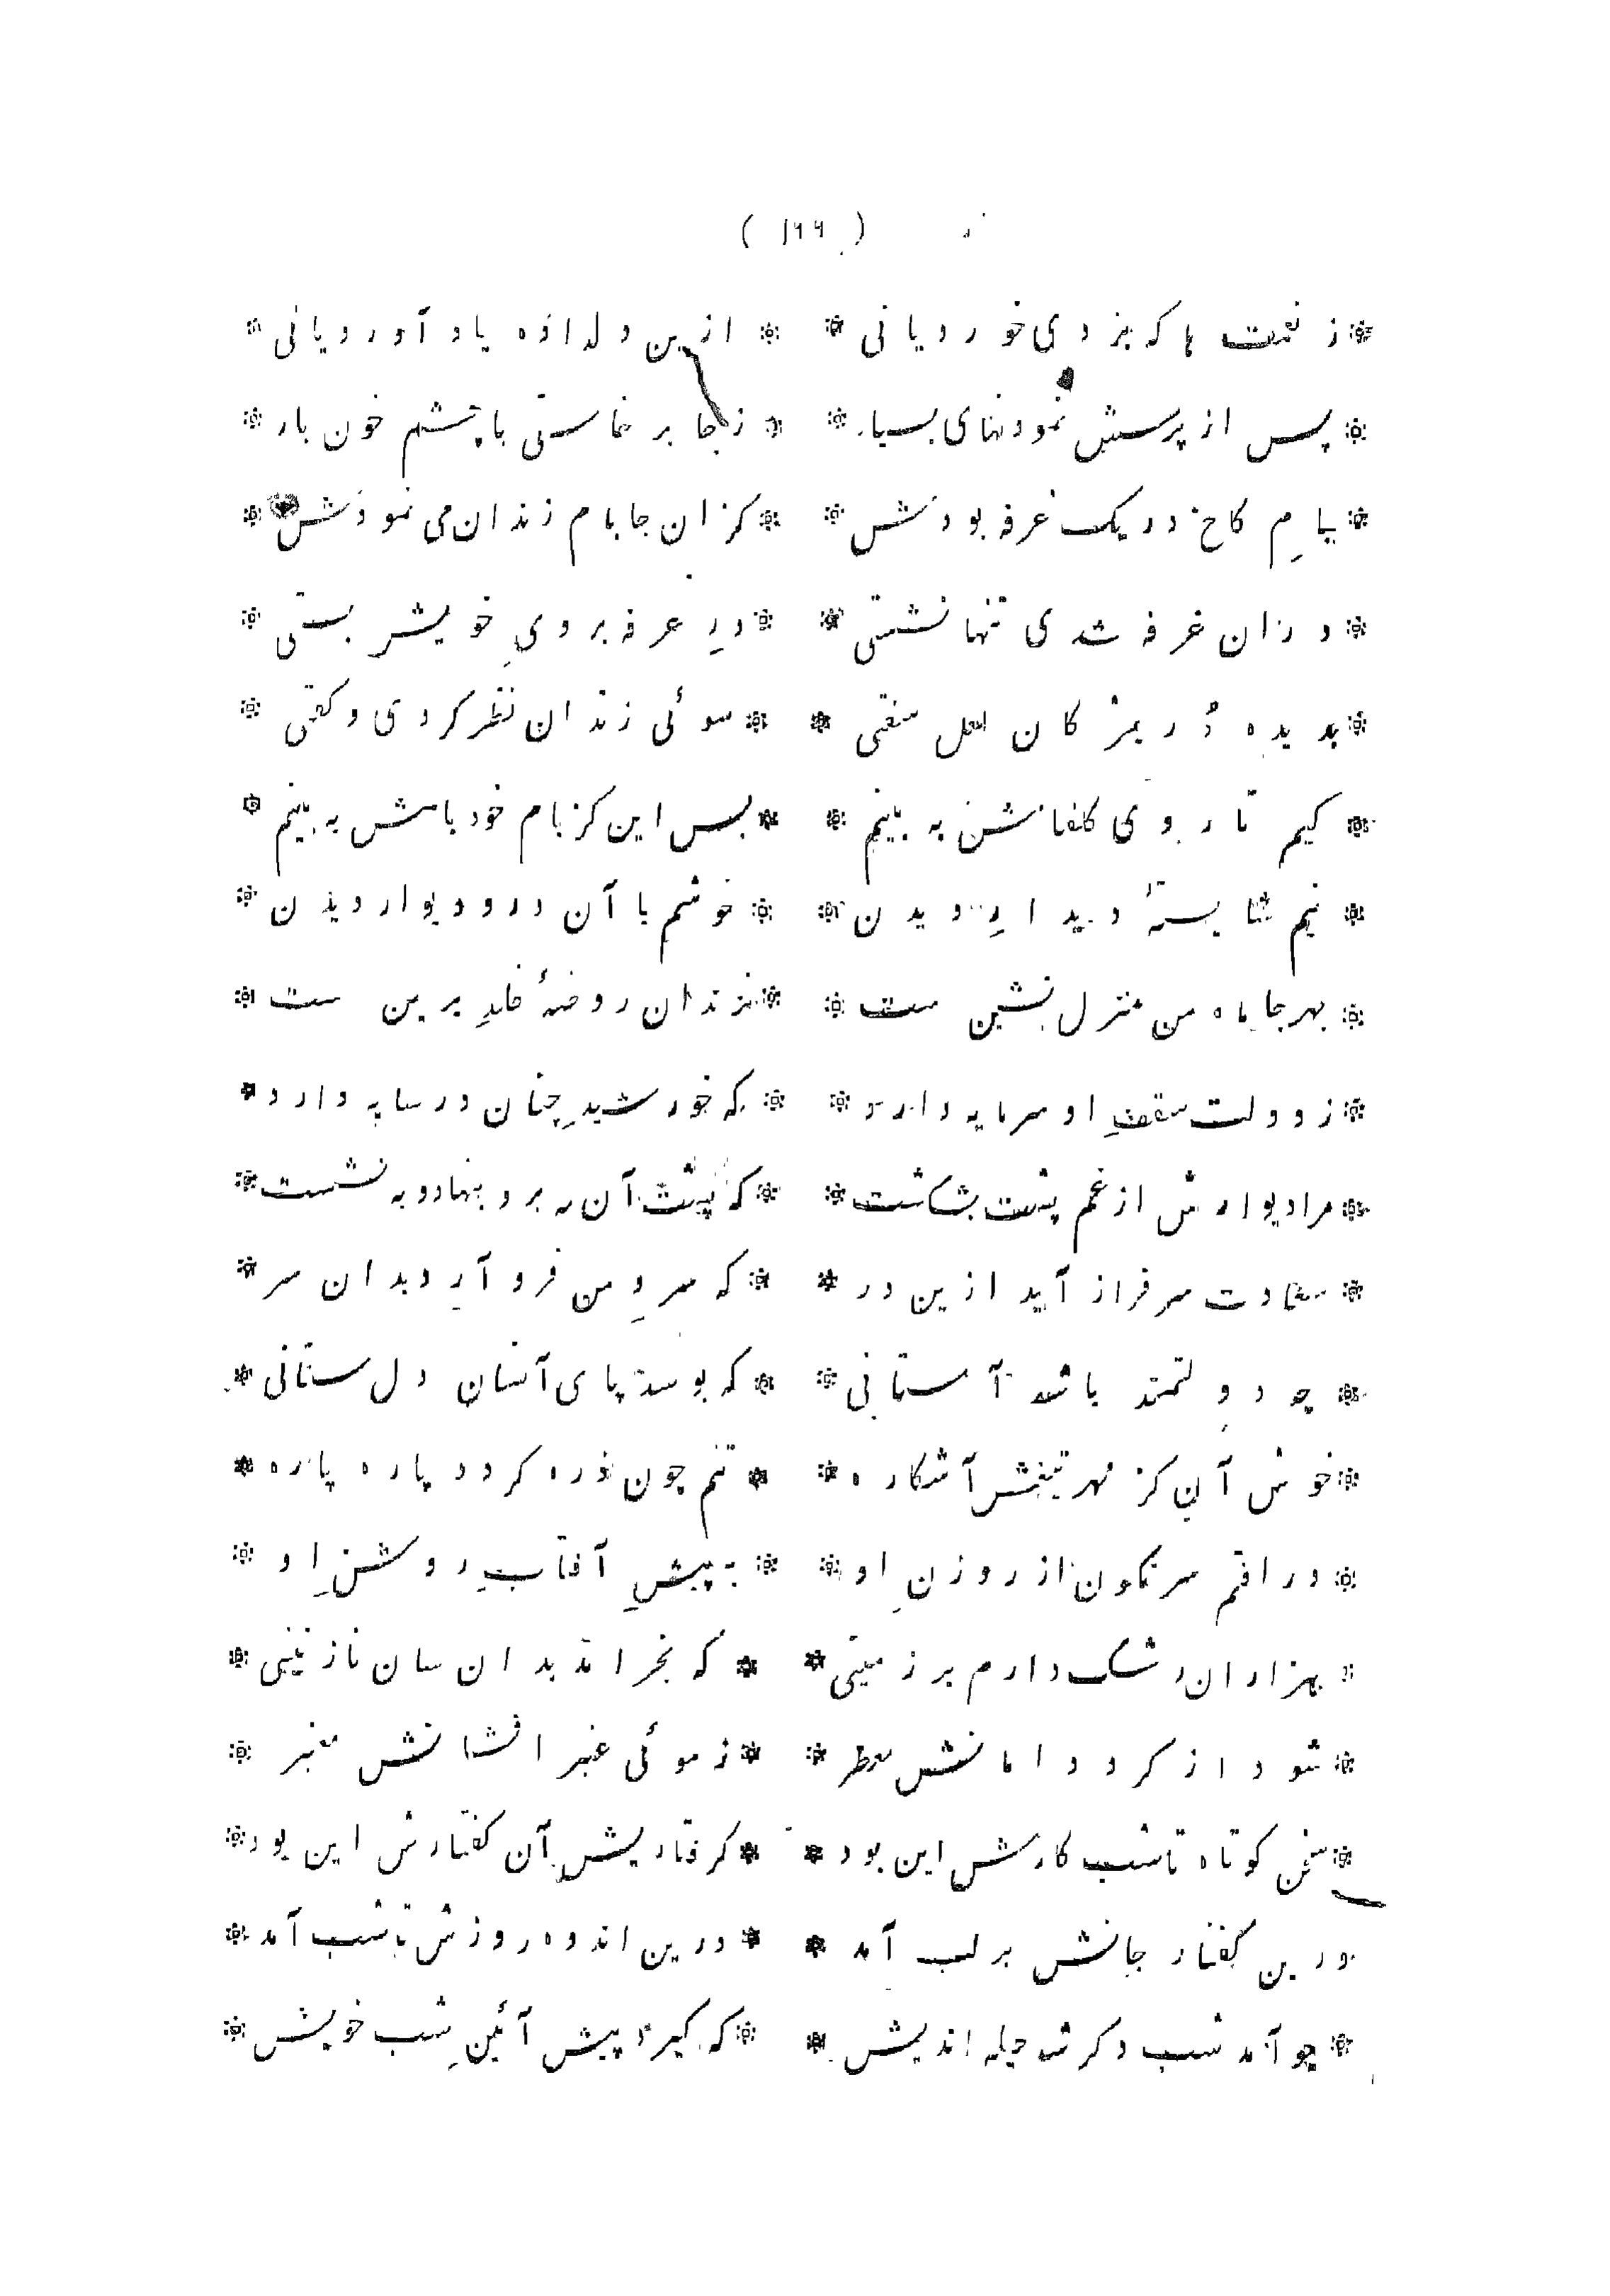 ( ۱۶۶ )
ز نعمت ها که بردی خوردیانی * ازین دلداده یاد آوردیانی
پس از پرسش نمودنهای بسیار * زجا بر خاستی با چشم خون بار
ببامِ کاخ در یک غرفه بودش * کزان جا بام زندان می نمودش
دران غرفه شدی تنها نشستی * درِ غرفه بروی خویش بستی
بدیده دُر بمژکان لعل سفتی * سوئی زندان نظر کردی و کفتی
کیم تا روی کلفامش به بینم * بس این کز بام خود بامش به بینم
نیم شایستهٔ دیدارِ دیدن * خوشم با آن در و دیوار دیدن
بهر جا ماه من منزل نشین ست * نزندان روضهٔ خلدِ برین ست
ز دولت سقفِ او سرمایه دارد * که خورشیدِ چنان در سایه دارد
مرا دیوارش از غم پشت بشکست * که پشت آن مه برو بنهاد و به نشست
سعادت سرفراز آید ازین در * که سروِ من فرو آرد بدان سر
چه دولتمند باشد آستانی * که بوسد پای آنسان دل ستانی
خوش آن کز مهر تیغش آشکاره * تنم چون ذره کردد پاره پاره
در افتم سرنکون از روزنِ او * به پیشِ آفتابِ روشنِ او
هزاران رشک دارم بر زمینی * که بخرامد بدان سان نازنینی
شود از کرد دامانش معطر * ز موئی عنبر افشانش معنبر
سخن کوتاه تا شب کارش این بود * کرفتاریش آن کفتارش این بود
درین کفتار جانش بر لب آمد * درین اندوه روزش تا شب آمد
چو آمد شب دکر شد حیله اندیش * که کیرد پیش آئینِ شب خویش